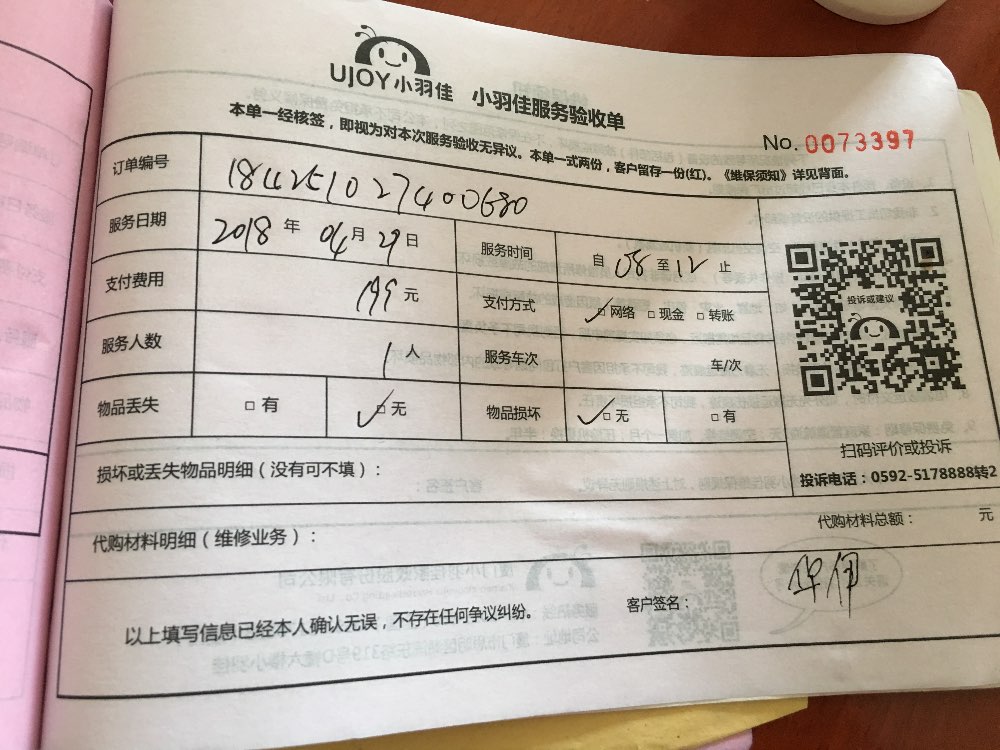 UJOY小羽佳 小羽佳服务验收单
本单一经核签，即视为对本次服务验收无异议。本单一式两份，客户留存一份(红)。《维保须知》详见背面。
No. 0073397
订单编号 184251027400680
服务日期 2018 年 04 月 29 日 服务时间 自 08 至 12 止
支付费用 199 元 支付方式 □ 网络 □ 现金 □ 转账
服务人数 1 人 服务车次 车/次
物品丢失 □ 有 □ 无 物品损坏 □ 无 □ 有
投诉或建议
扫码评价或投诉
投诉电话：0592-5178888转2
损坏或丢失物品明细（没有可不填）：
代购材料明细（维修业务）： 代购材料总额： 元
以上填写信息已经本人确认无误，不存在任何争议纠纷。 客户签名：